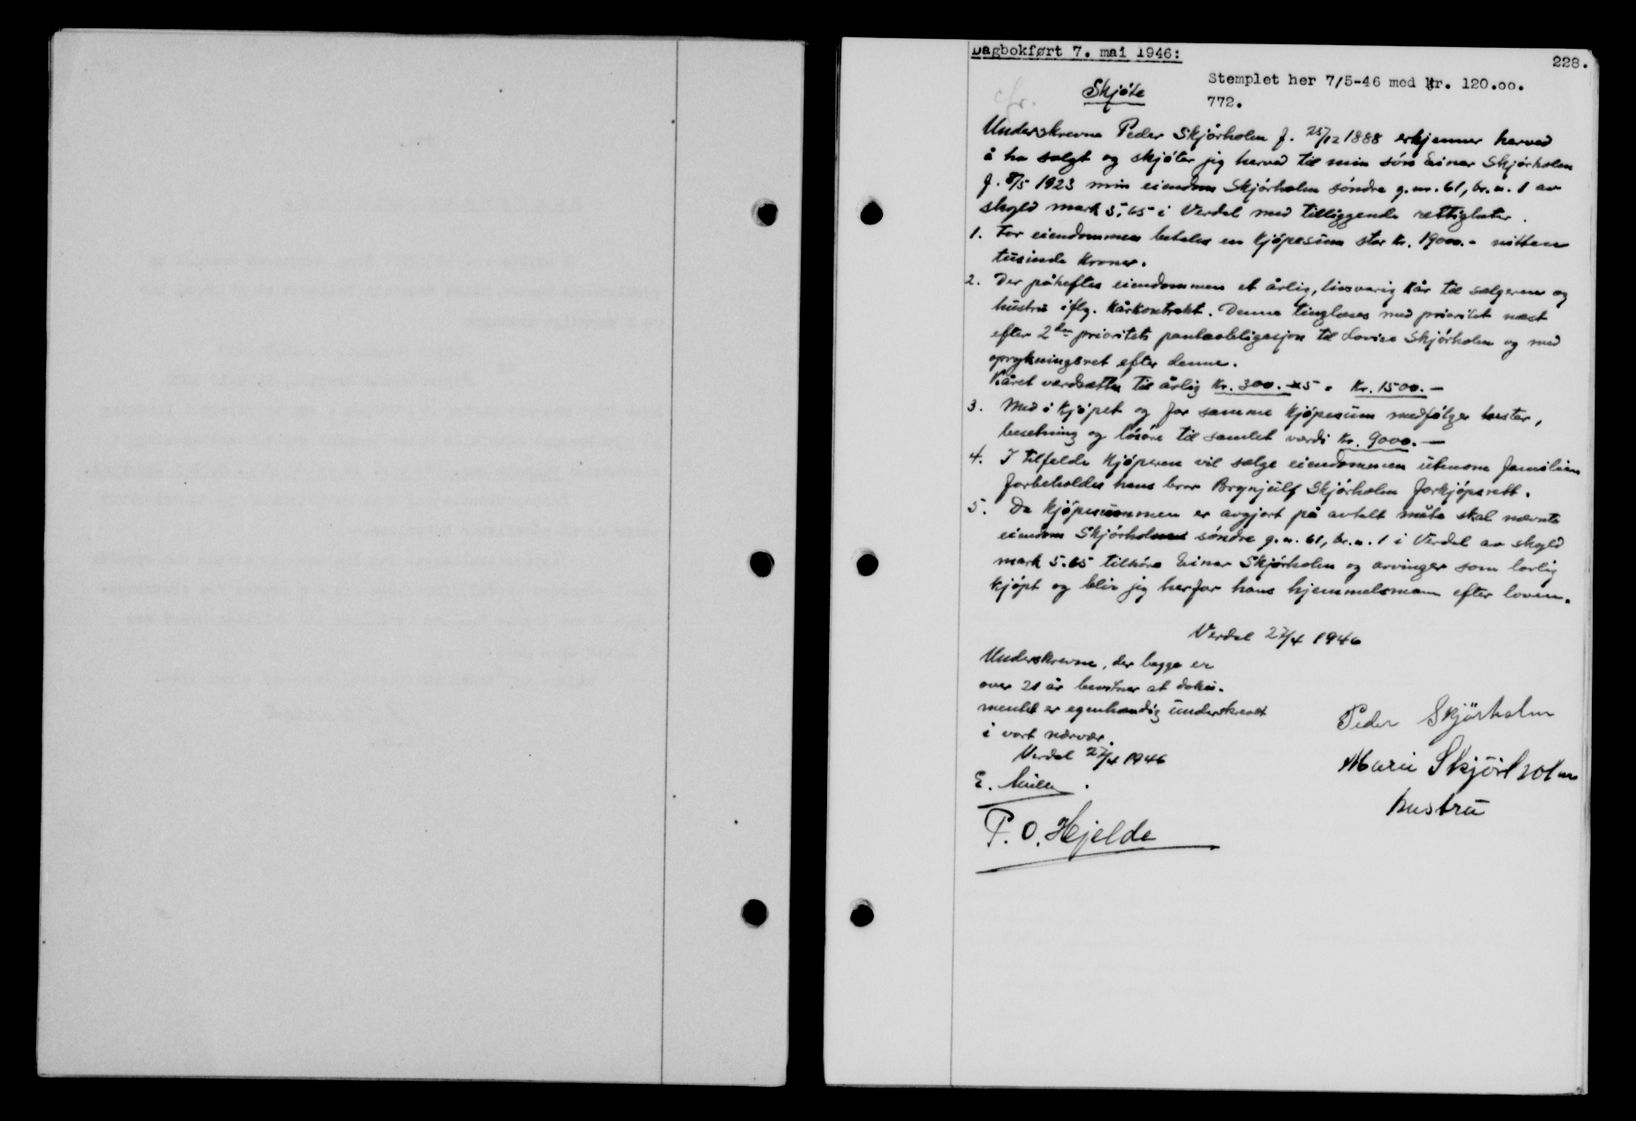 Dagbokført 7. mai 1946:
228.
Stemplet her 7/5-46 med Kr. 120.00.
772.
Skjøte
Underskrevne Peder Skjørholm f. 25/12 1888 erkjenner herved
å ha solgt og skjøter jig herved til min sønn Einar Skjørholm
f. 8/5 1923 min eiendom Skjørholm søndre g.nr. 61, br.n. 1 av
skyld mark 5,65 i Verdal med tilliggende rettigheter.
1. For eiendommen betales en kjøpesum stor kr. 19000.- nitten
tusinde kroner.
2. Der påheftes eiendommen et årlig, livsvarig kår til sælgeren og
hustru iflg. kårkontrakt. Denne tinglæses med prioritet næst
efter 2den prioritets panteobligasjon til Lovise Skjørholm og med
oprykningsret efter denne.
Kåret værdsættes til årlig kr. 300.- x5 = kr. 1500.-
3. Med i kjøpet og for samme kjøpesum medfølger hester,
besetning og løsøre til samlet værdi kr. 9000.-
4. I tilfelde kjøperen vil sælge eiendommen utenom familien
forbeholdes hans bror Brynjulf Skjørholm forkjøpsrett.
5. Da kjøpesummen er avgjort på avtalt måte skal nævnte
eiendom Skjørholmen søndre g.n. 61, br.n. 1 i Verdal av skyld
mark 5.65 tilhøre Einar Skjørholm og arvinger som lovlig
kjøpt og blir jig herfor hans hjemmelsmann efter loven.
Verdal 27/4 1946
Underskrevne, der begge er
over 21 år bevitner at doku-
mentet er egenhændig underskrevet
i vort nærvær.
Verdal 27/4 1946
Peder Skjørholm
Marie Skjørholm
hustru
E.
P. O. Hjelde